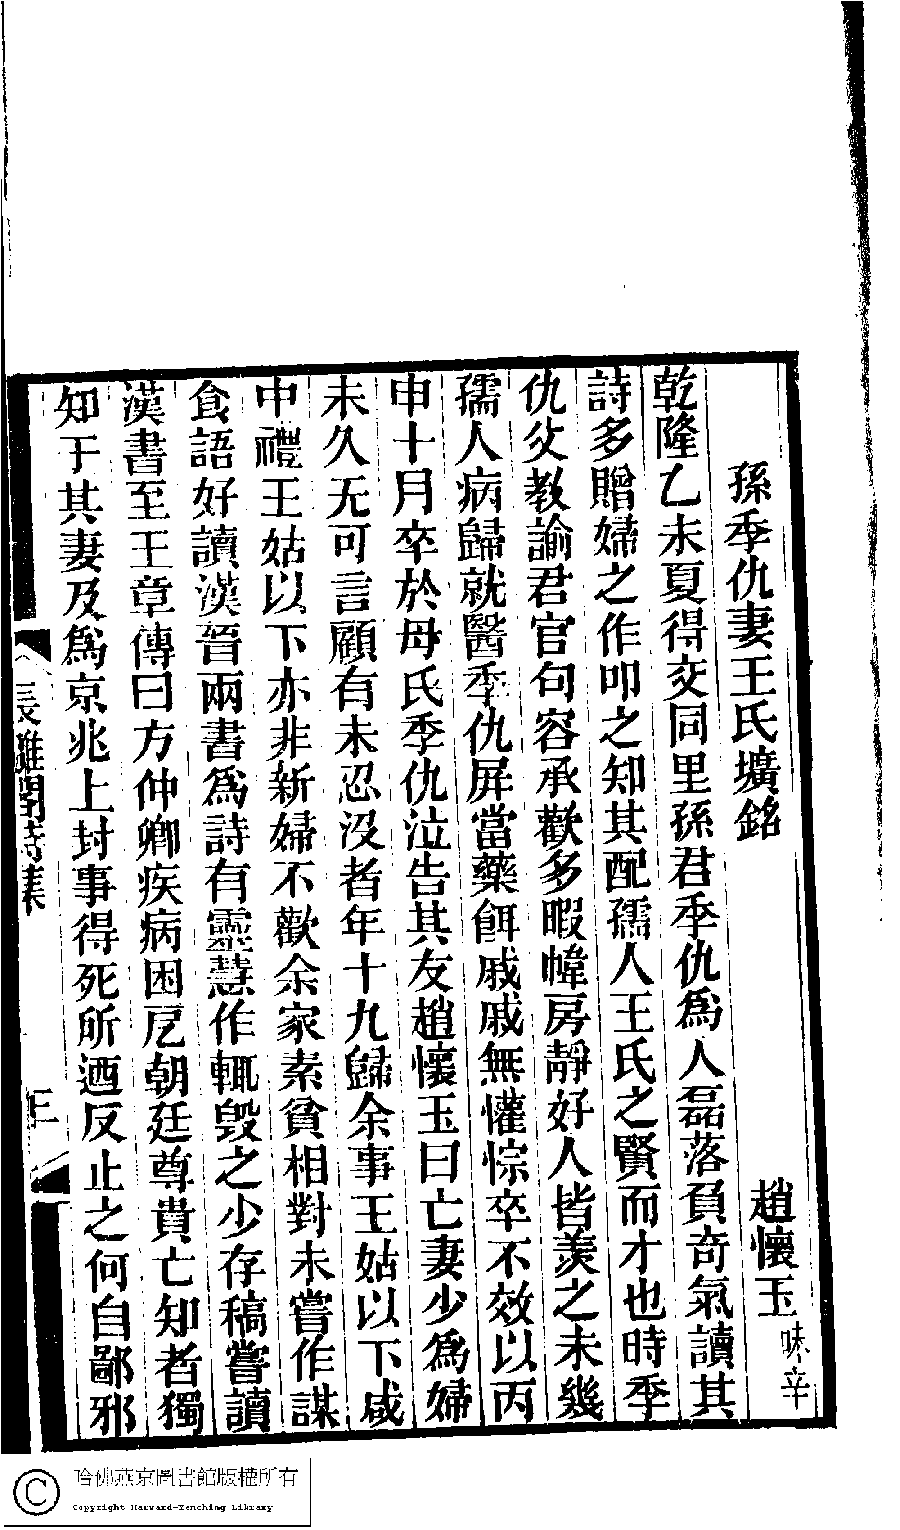 孫季仇妻王氏壙銘
趙懷玉 味辛
乾隆乙未夏得交同里孫君季仇爲人磊落負奇氣讀其
詩多贈婦之作叩之知其配孺人王氏之賢而才也時季
仇父教諭君官句容承歡多暇幃房靜好人皆羨之未幾
孺人病歸就醫季仇屏當藥餌戚戚無懽悰卒不效以丙
申十月卒於母氏季仇泣告其友趙懷玉曰亡妻少爲婦
未久无可言顧有未忍沒者年十九歸余事王姑以下咸
中禮王姑以下亦非新婦不歡余家素貧相對未嘗作謀
食語好讀漢晉兩書爲詩有靈慧作輒毀之少存稿嘗讀
漢書至王章傳曰方仲卿疾病困戹朝廷尊貴亡知者獨
知于其妻及爲京兆上封事得死所迺反止之何自鄙邪
長離閣詩集
哈佛燕京圖書館版權所有
Copyright Harvard-Yenching Library